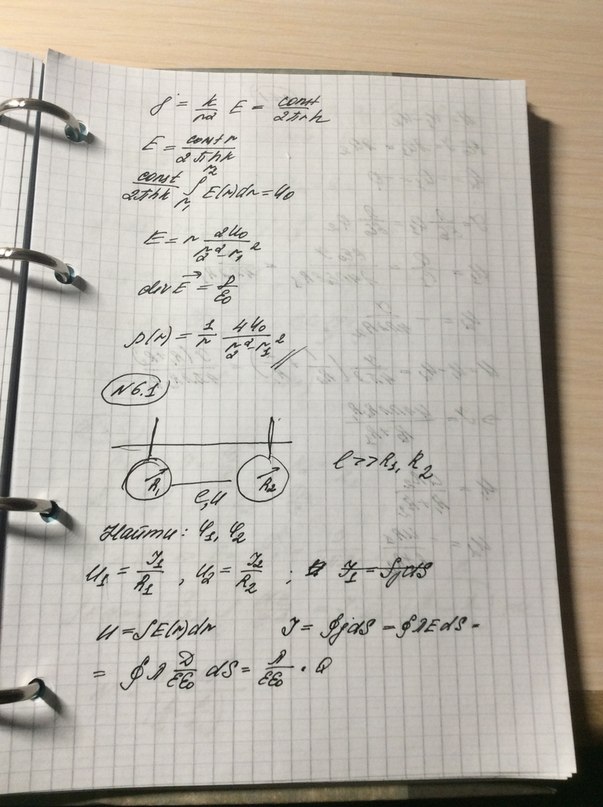 j = k/r² E = const/2πrh
E = const r/2πhk
const/2πhk ∫_{r₁}^{r₂} E(r)dr = U₀
E = r 2U₀/r₂²-r₁²
div E⃗ = ρ/ε₀
ρ(r) = 1/r 4U₀/r₂²-r₁²
N6.1
R₁ l, U R₂ l >> R₁, R₂
Найти: φ₁, φ₂
U₁ = J₁/R₁, U₂ = J₂/R₂ ; J₁ = ∫jdS
U = ∫E(r)dr J = ∮jdS = ∮λEdS =
= ∮λ D/εε₀ dS = λ/εε₀ · Q